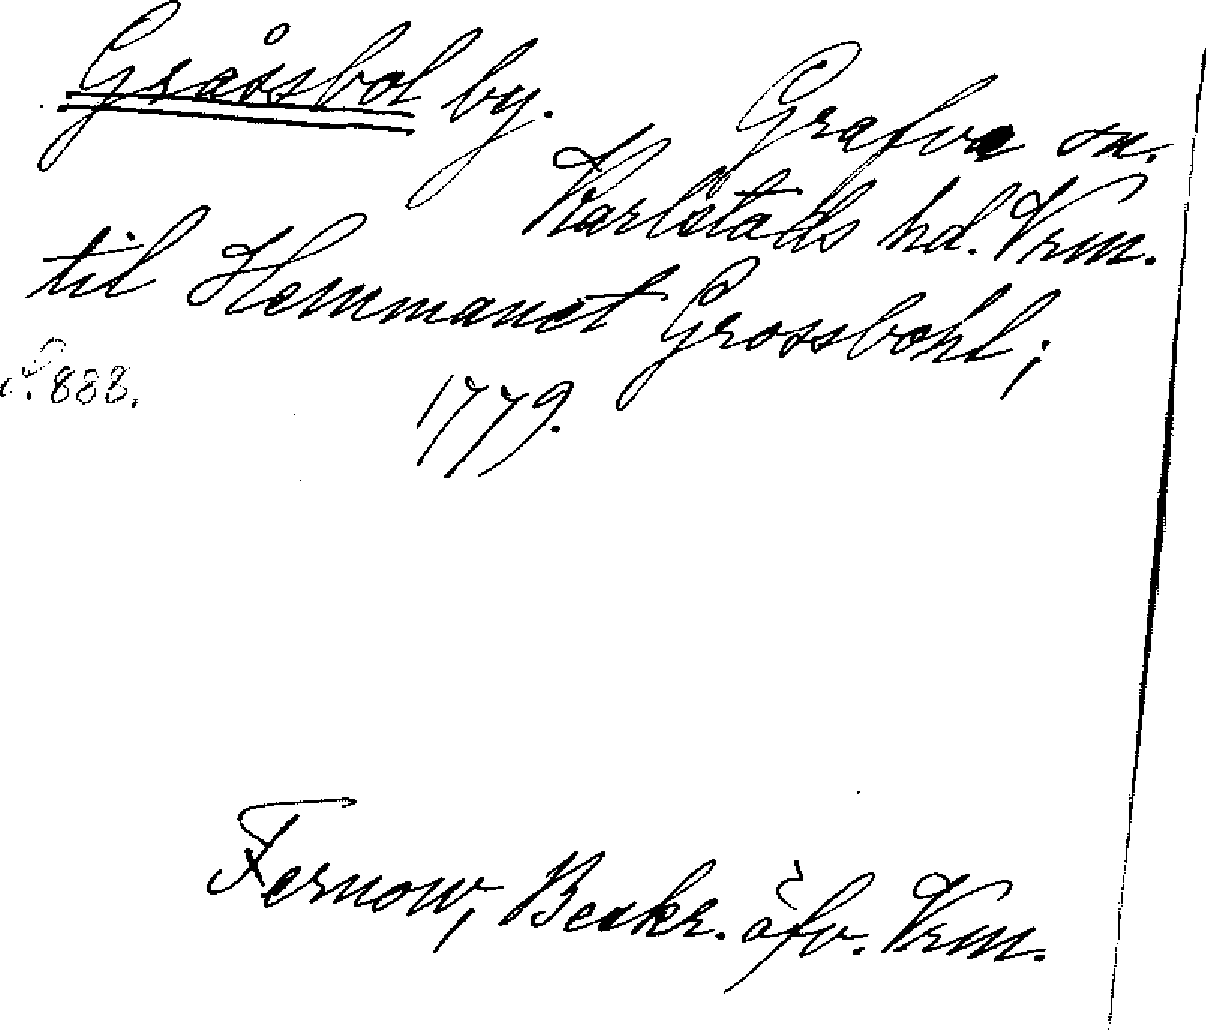 Gråsbol by. Grafva sn.
Karlstads hd. Vrm.
til Hemmanet Grossbohl;
S. 888. 1779.
Fernow, Beskr. öfv. Vrm.